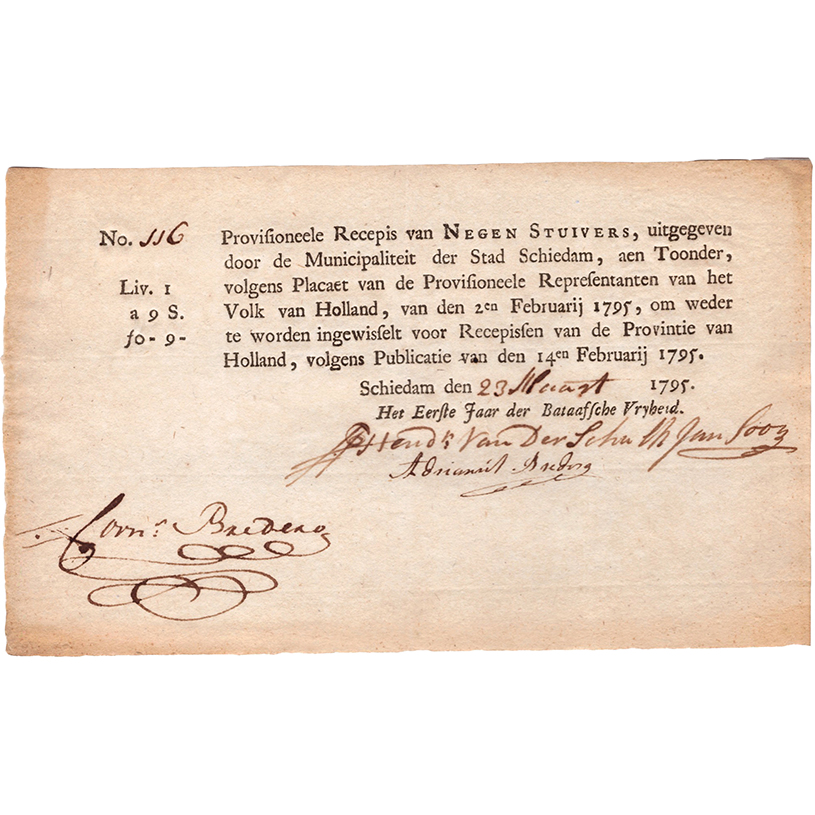 No. 116
Liv. 1
a 9 S.
ſo - 9 -
Proviſioneele Recepis van NEGEN STUIVERS, uitgegeven
door de Municipaliteit der Stad Schiedam, aen Toonder,
volgens Placaet van de Proviſioneele Repreſentanten van het
Volk van Holland, van den 2en Februarij 1795, om weder
te worden ingewiſſelt voor Recepiſſen van de Provintie van
Holland, volgens Publicatie van den 14en Februarij 1795.
Schiedam den 23 Maart 1795.
Het Eerſte Jaar der Bataafſche Vryheid.
Hendk Van Der Schalk Jan
Corns. Bredero